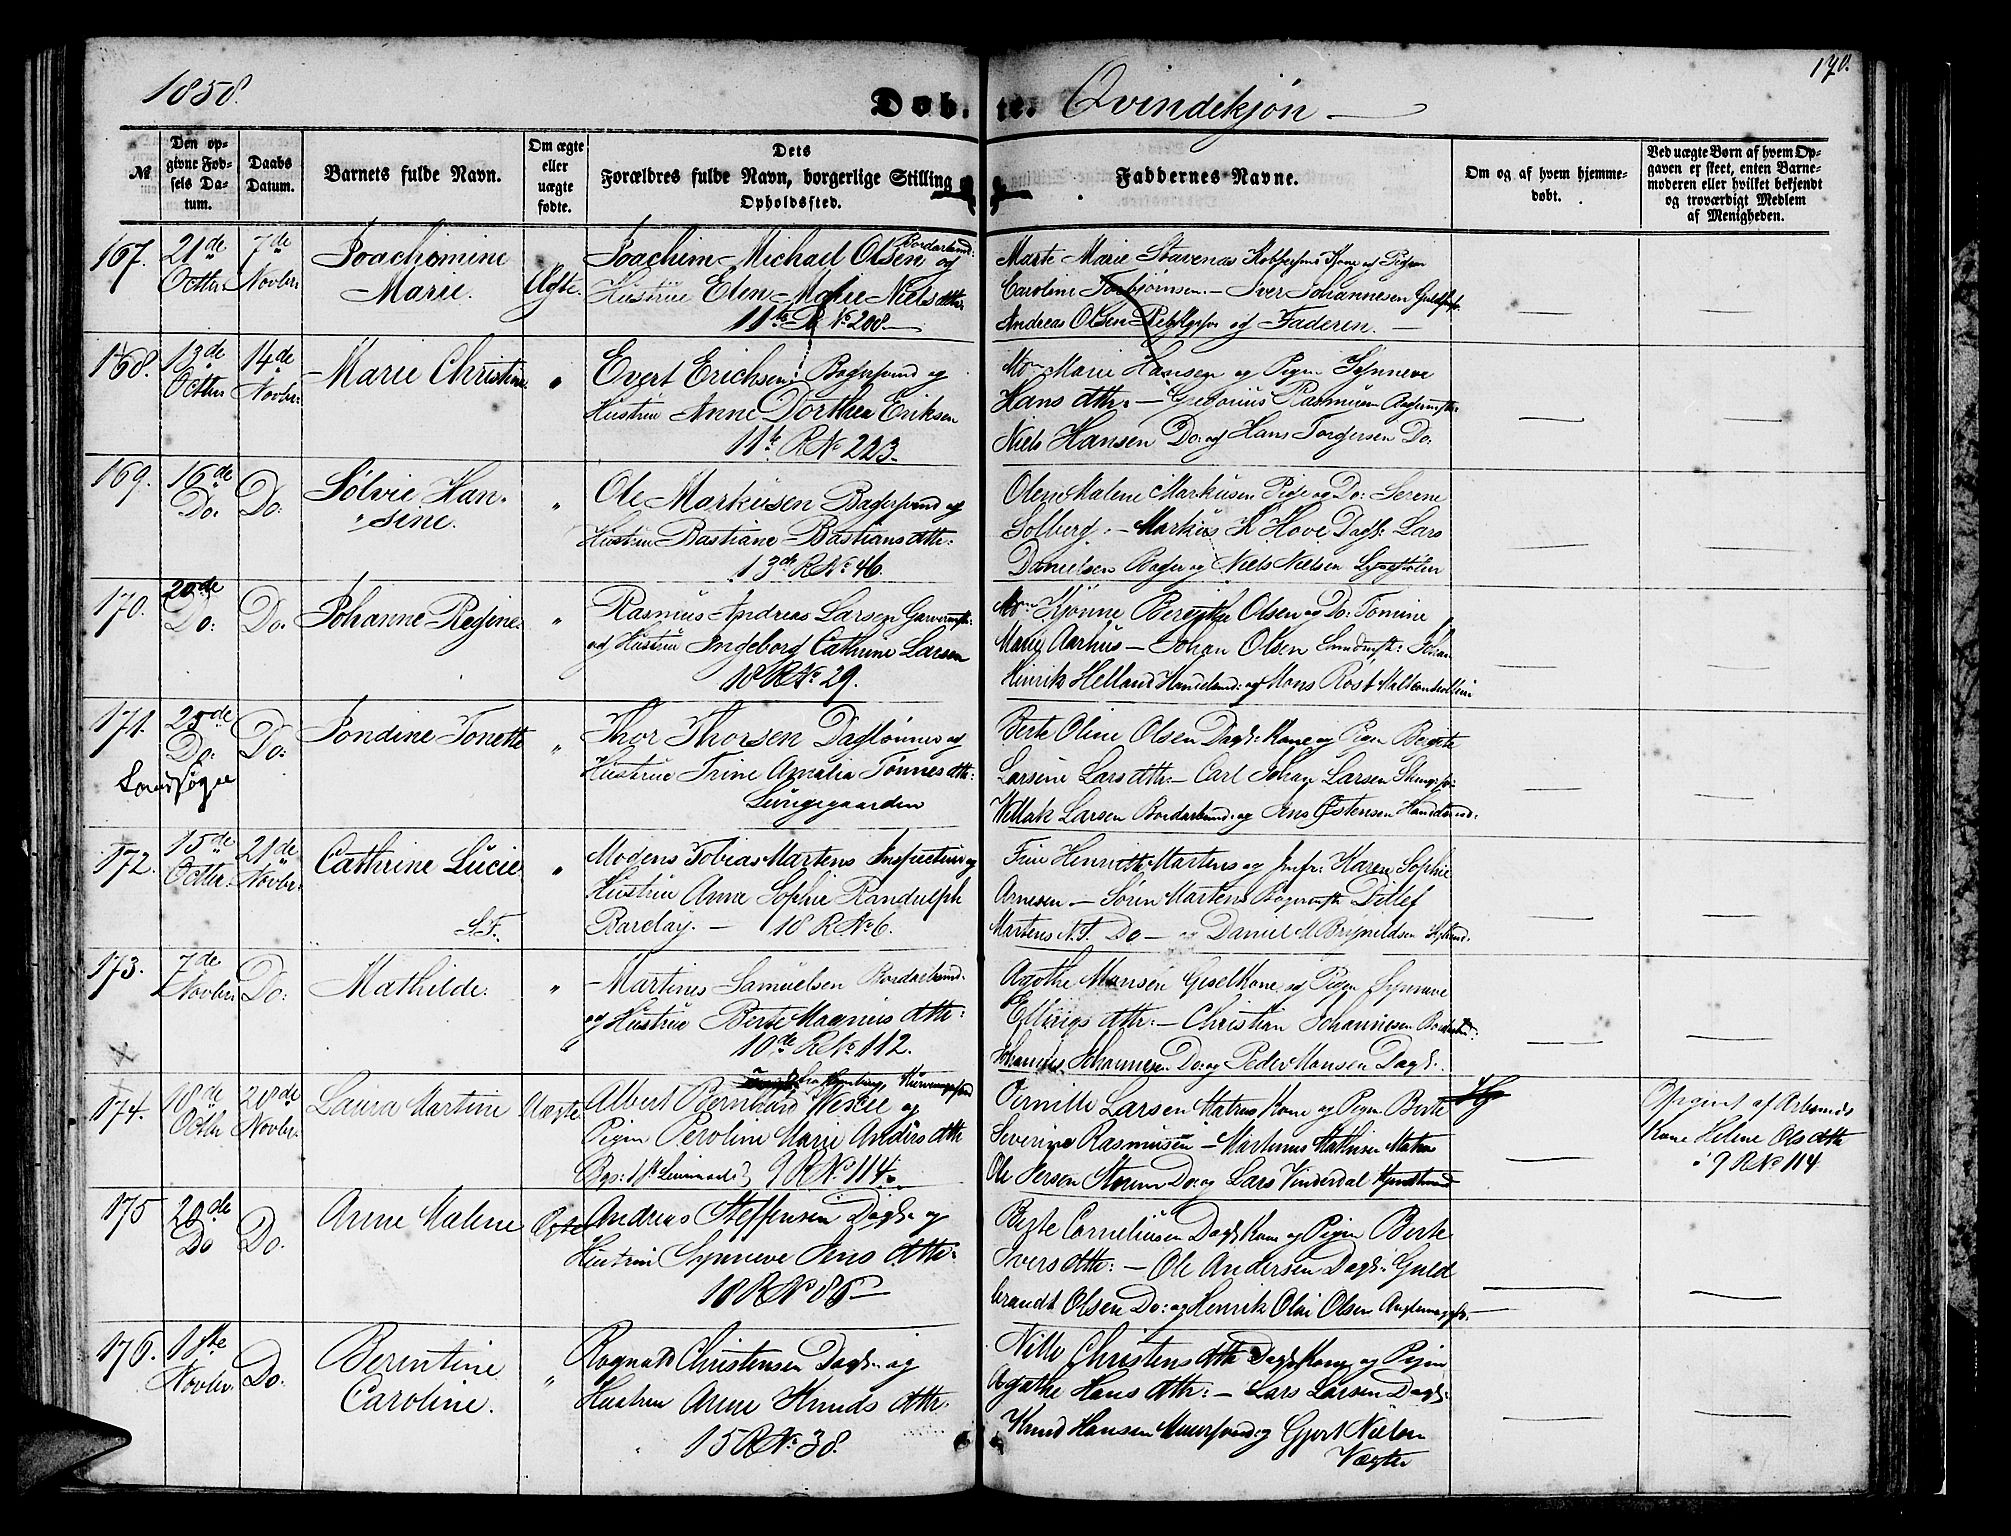 1858.
170.
Døb. te. Qvindekjøn
№
Den opgivne Fødsels Datum.
Daabs Datum.
Barnets fulde Navn.
Om ægte eller uægte fødte.
Dets Forældres fulde Navn, borgerlige Stilling Opholdssted.
Faddernes Navne.
Om og af hvem hjemmedøbt.
Ved uægte Børn af hvem Opgaven er skeet, enten Barnemoderen eller hvilket bekjendt og troværdigt Medlem af Menigheden.
167. 21de Octbr. 7de Novbr. Joachimine Marie. Ægte.
Joachim Michael Olsen Bordarbmd: og
Hustrue Elen Marie Niels dtr.
11te R № 208.
Marte Marie Stavenæs Kone og Pigen
Caroline Torbjørnsen. – Iver Johannesen
Andreas Olsen og Faderen. –
168. 13de Octbr. 14de Novbr. Marie Christine "
Evert Erichsen Bagersvend og
Hustrue Anne Dorthea Eriksen
11te R № 223.
Mo Marie Hansen og Pigen Synneve
Hans dtr. – Gregorius Rasmusen
Niels Hansen Do: og Hans Torgersen Do.
169. 16de Do. Do: Sølvie Hansine. "
Ole Markusen Bagersvend og
Hustrue Bastiane Bastians dtr:
13de R № 46.
Olene Malene Markusen Pige og Do: Serene
Solberg. – Markus K Hove Dagl: Lars
Danielsen Bager og Niels Nielsen
170. 20de Do: Do. Johanne Regine. "
Rasmus Andreas Larsen Garvermstr:
og Hustrue Ingeborg Cathrine Larsen
18 R № 29.
Kjønne Bergithe Olsen og Do: Tomine
Marie Aarhus – Johan Olsen Johan
Henrik Helland Handelsmd: og Mons Rost
171. 25de Do. Do: Jondine Tonette "
Landsogn
Thor Thorsen Daglønner og
Hustrue Trine Amalia Tønnes dtr:
Lungegaarden
Berte Oline Olsen Dagl: Kone og Pigen Bergite
Larsine Lars dtr. – Carl Johan Larsen
Larsen Bordarbmd: og Jens Østensen
172. 15de Octbr. 21de Novbr. Cathrine Lucie "
S.F.
Modens Tobias Martens Inspecteur og
Hustrue Anna Sophie Randulph
Barclay. – 18 R № 6.
Frue Martens og Jmfr: Karen Sophie
Arnesen – Søren Martens Bagermstr Ditlef
Martens Do – og Daniel M Brynildsen
173. 7de Novbr. Do: Mathilde. "
Martines Samuelsen Bordarbmd.
og Hustrue Berte Magnus dtr:
10de R № 112.
Agathe Monsen Kone og Pigen Synneve
Ellings dtr: – Christian Johannesen
Johannes Johannesen Do: og Peder Monsen Dagl.
174. 18de Octbr 28de Novbr. Laura Martine Uægte
Albert Bernhard og
Pigen Peroline Marie Anders dtr
9 R № 114.
Pernille Larsen Matros Kone og Pigen Berte
Severine Rasmusen – Martinus Mathisen Matros
Ole Iversen Storm Do: og Lars Vinderdal
Opgivet af Arbmds
Kone Helene Ols dtr
i 9 R № 114
175 20de Do Do. Anne Malene Ægte
Andreas Steffensen Dagl: og
Hustrue Synneve Jens dtr.
18 R № 86
Berte Corneliusen Dagl: Kone og Pigen Berte
Ivers dtr: – Ole Andersen Dagl: Guldbrandt Olsen Do: og Henrik Olai Olsen
176. 1ste Novbr. Do. Berentine Caroline. "
Rognald Christensen Dagl: og
Hustrue Anne Knuds dtr.
15 R № 38.
Nille Christens dtr Dagl: Kone og Pigen
Agathe Hans dtr: – Lars Larsen Dagl:
Knud Hansen Muursvend og Gjert Nielsen
Vægter